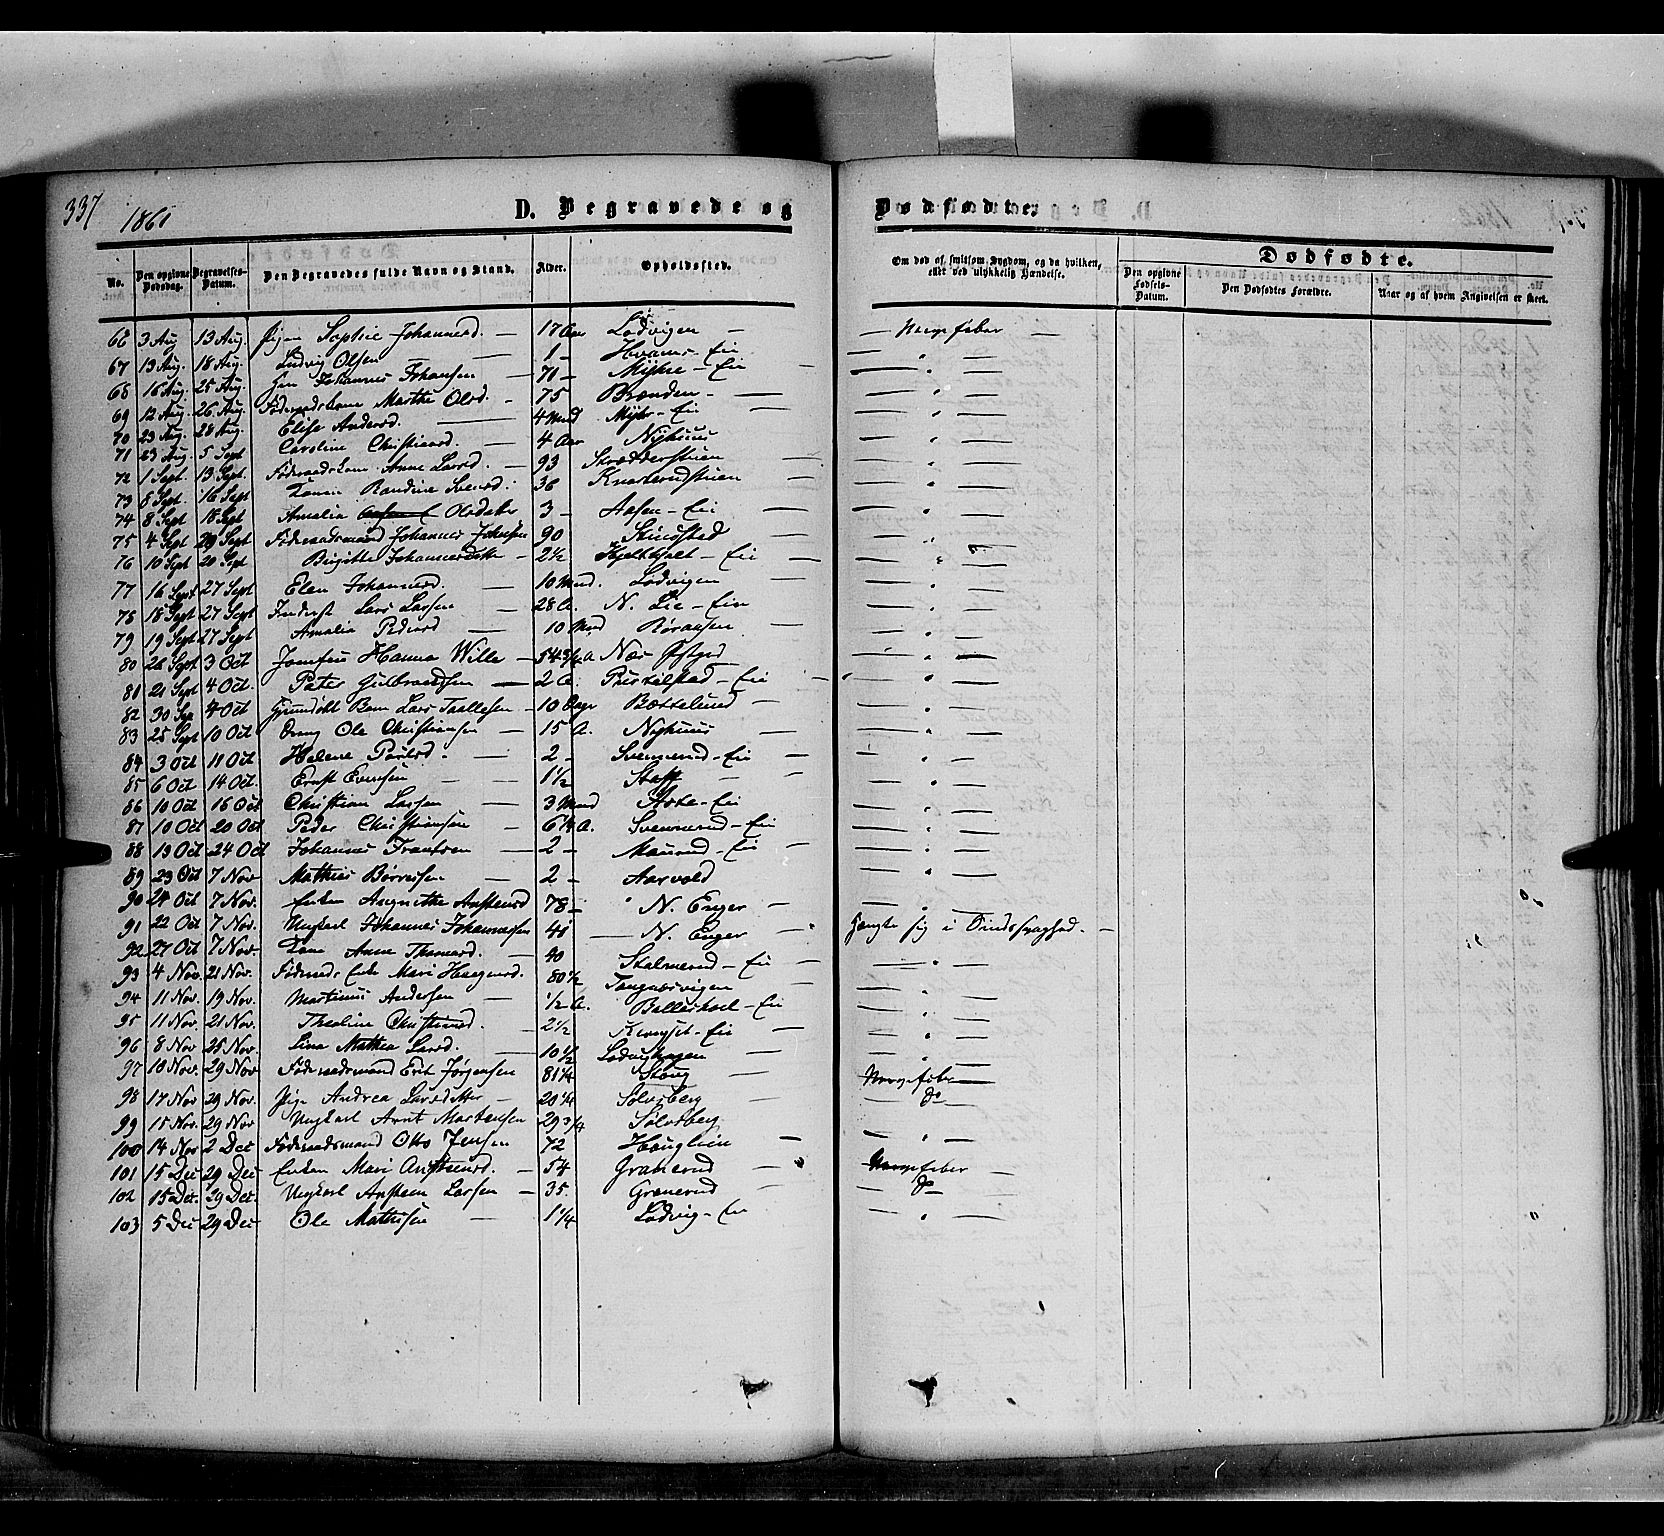 337
1861
D. Begravede og
Dødfødte.
No. Den opgivne Dødsdag. Begravelses-Datum. Den Begravedes fulde Navn og Stand. Alder. Opholdssted.
Om død af smitsom Sygdom, og da hvilken, eller ved ulykkelig Hændelse.
Dødfødte.
Den opgivne Fødsels-Datum. Den Dødfødtes Forældre. Naar og af hvem Angivelsen er skeet.
66 3 Aug 13 Aug. Pigen Sophie Johannesd. — 17 Aar Lodvigen — — Nervefeber —
67 13 Aug. 18 Aug. Ludvig Olsen — 1 — Hvams-Eie — " —
68 16 Aug. 25 Aug. Johannes Johansen — 71 — Myhre-Eie — " —
69 12 Aug. 26 Aug. Føderaadskone Marthe Olsd. - 75 Brænden - — " —
70 23 Aug. 28 Aug. Elise Andersd. — 4 Mnd Myhr-Eie — " —
71 23 Aug. 5 Sept Caroline Christiansd. — 4 Aar Nyhuus — " —
72 1 Sept. 13 Sept. Føderaadskone Anne Larsd. — 93 Skrædderstuen — " —
73 8 Sept. 16 Sept Konen Randine Svensd. 36 Knarterudstuen — " —
74 8 Sept 18 Sept Amalia Olsdatter 3 — Aasen-Eie — " —
75 4 Sept 29 Sept Føderaadsmand Johannes Johnsen 90 Stingsted — " —
76 10 Sept 20 Sept Birgitte Johannesdtter — 2½ — Eie — " —
77 16 Sept 27 Sept Elen Johannesd. — 10 Mnd. Lodvigen — " —
78 18 Sept 27 Sept Inderst Lars Larsen — 28 A. N. Lie-Eie — " —
79 19 Sept 27 Sept Amalia Pedersd — 10 Mnd Røraasen — " —
80 26 Sept 3 Oct Jomfru Hanna Wille — 54 3/4 A Nær — " —
81 21 Sept 4 Oct. Peter Gulbrandsen — 2 A. Eie — " —
82 30 Sep 4 Oct Barn Lars Taallesen - 10 Dage — " —
83 25 Sept 10 Oct Dreng Ole Christiansen — 15 A. Nyhuus — " —
84 3 Oct 11 Oct Helene Paulsd. — 2 - Svennerud-Eie — " —
85 6 Oct 14 Oct. Ernst Evensen — 1½ Staff — " —
86 10 Oct 16 Oct Christian Larsen — 3 Mnd Eie — " —
87 10 Oct 20 Oct. Peder Christiansen - 6¼ A. Svennerud-Eie — " —
88 19 Oct 24 Oct Johannes Frantsen — 2 — Maurud-Eie — " —
89 23 Oct 7 Nov Mathias Børresen — 2 — Aarvold — " —
90 24 Oct 7 Nov. Enken Angnethe Anstensd 78 — N. Enger — — " —
91 22 Oct 7 Nov. Ungkarl Johannes Johannessen 41 — N. Enger — Hængte sig i Sindssvaghed. —
92 27 Oct 7 Nov. Kone Anne Thomasd. — 40 Stalnerud-Eie — " —
93 4 Nov. 21 Nov. Føderaads Enke Mari Haagensd. 80½ Tangnæsvigen — " —
94 11 Nov. 19 Nov. Martinus Andersen — ½ A. Ballerhoel-Eie — " —
95 11 Nov. 21 Nov. Theoline Christiansd. — 2½ Eie — " —
96 8 Nov 25 Nov. Lina Mathea Larsd. — 10½ Lodvighagen — " —
97 10 Nov. 29 Nov Føderaadsmand Erik Jørgensen 81¼ Skoug — Nervefeber —
98 17 Nov 29 Nov. Pige Andrea Larsdtter — 20¼ Sølvsberg — — do —
99 15 Nov. 29 Nov Ungkarl Arnt Mortensen 29 3/4 Sølvsberg — " —
100 14 Nov 2 Dec Føderaadsmand Otto Jensen 72 Houglein — — " —
101 15 Dec 29 Dec Enken Mari Anstensd. — 54 Granerud — Nervefeber —
102 15 Dec. 29 Dec. Ungkarl Ansten Larsen — 35. Granerud — — do —
103 5 Dec 29 Dec Ole Mathisen — 1¼ Lodvig-Eie — " —